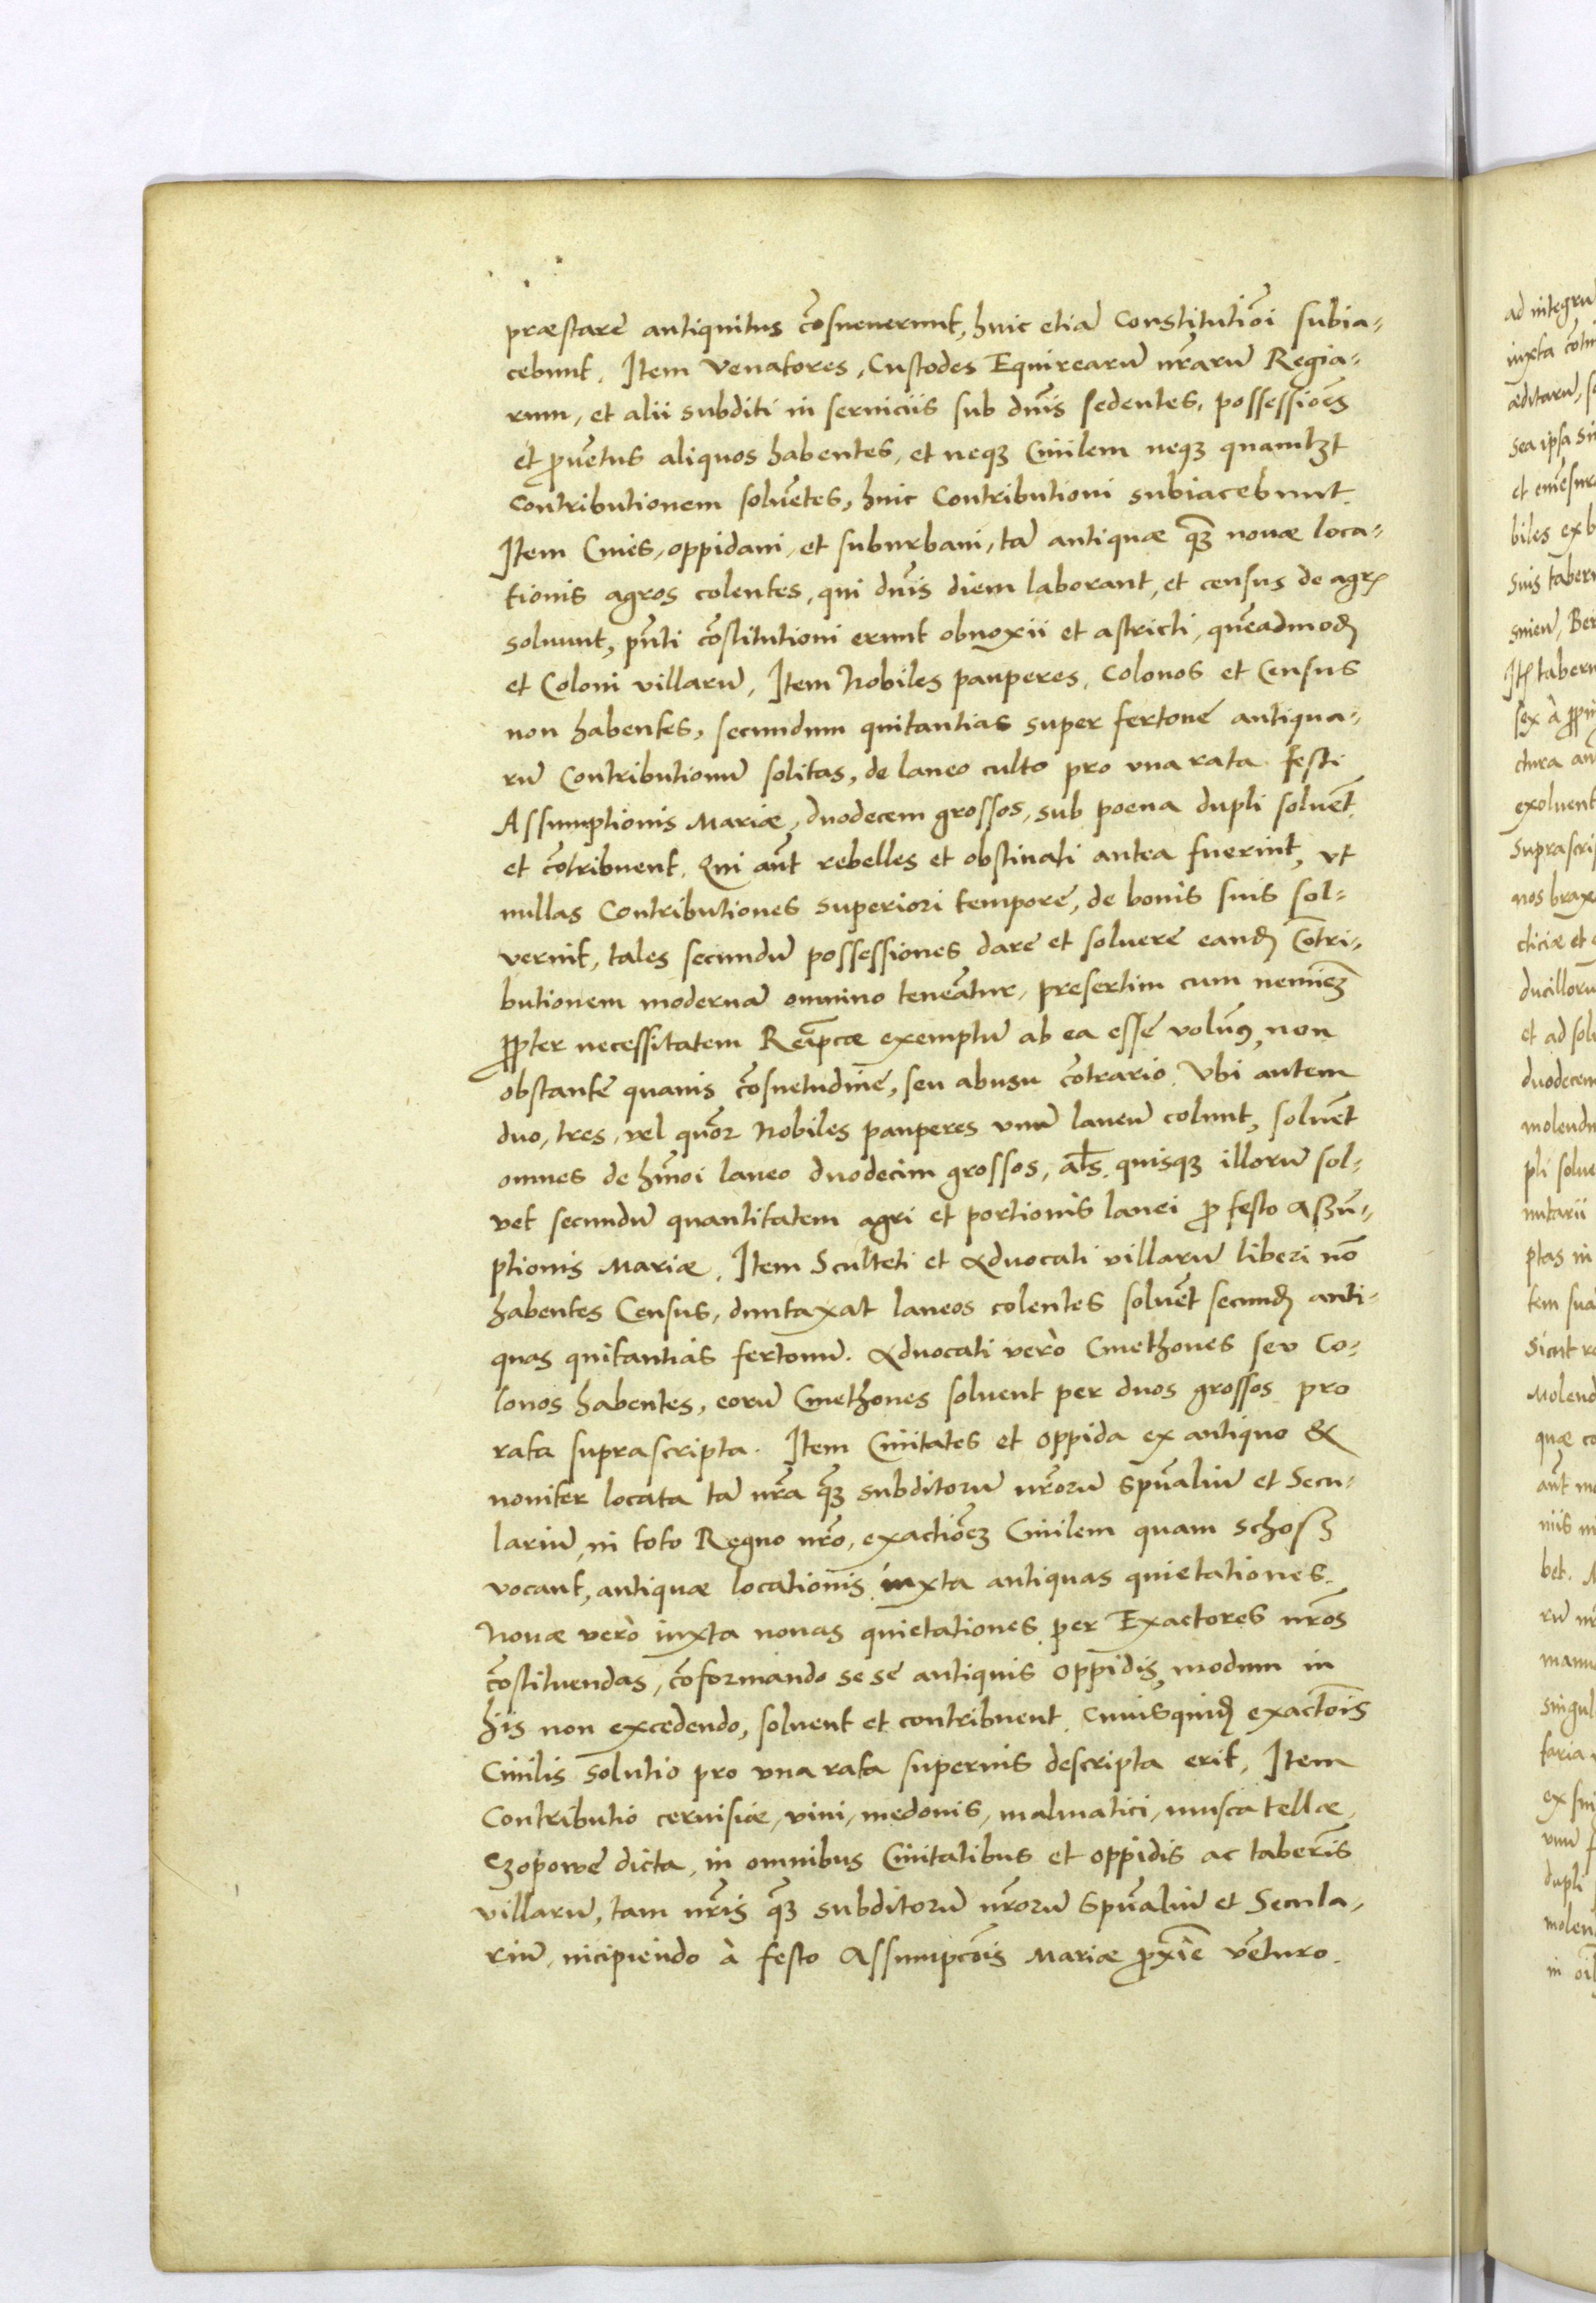 præstare antiquitus cōsueuerunt, huic etiā Constitutiōi subia-
cebunt. Item Venatores, Custodes Equirearū nr̄arū Regia-
rum, et alii subditi in seruiciis sub dn̄is sedentes, possessiōes
et ꝓuētus aliquos habentes, et neqꝫ Ciuilem neqꝫ quamlꝫt
Contributionem soluētes, huic Contributioni subiacebunt.
Item Ciues, oppidani, et suburbani, tā antiquæ qꝫ nouæ loca-
tionis agros colentes, qui dn̄is diem laborant, et census de agrꝭ
soluunt, pn̄ti cōstitutioni erunt obnoxii et astricti, quēadmoꝺ
et Coloni villarū, Item Nobiles pauperes, Colonos et Census
non habentes, secundum quitantias super fertone antiqua-
rū Contributionū solitas, de laneo culto pro vna rata festi
Assumptionis Mariæ, duodecem grossos, sub poena dupli soluēt
et cōtribuent. Qui aūt rebelles et obstinati antea fuerint, vt
nullas Contributiones superiori tempore, de bonis suis sol-
verint, tales secundū possessiones dare et soluere eanꝺ Cōtri-
butionem modernā omnino teneātur, presertim cum neminēꝫ
ꝓpter necessitatem Reip̄cæ exemptū ab ea esse volumꝰ, non
obstante quauis cōsuetudine, seu abusu cōtrario. Vbi autem
duo, tres, vel quōr Nobiles pauperes vnū laneū colunt, soluēt
omnes de hm̄oi laneo duodecim grossos, al̄s quisqꝫ illorū sol-
vet secundū quantitatem agri et portionis lanei ꝓ festo Assū-
ptionis Mariæ. Item Sculteti et Aduocati villarū liberi nō
habentes Census, duntaxat laneos colentes soluēt secunꝺ anti-
quas quitantias fertonū. Aduocati verò Cmethones seu Co-
lonos habentes, eorū Cmethones soluent per duos grossos pro
rata suprascripta. Item Ciuitates et oppida ex antiquo &
nouiter locata tā nr̄a qꝫ subditorū nr̄orū Spūaliū et Secu-
lariū, in toto Regno nr̄o, exactiōeꝫ Ciuilem quam Schosz
vocant, antiquæ locationis iuxta antiquas quietationes.
Nouæ verò iuxta nouas quietationes per Exactores nr̄os
cōstituendas, cōformando sese antiquis oppidis, modum in
his non excedendo, soluent et contribuent. Cuiusquiꝺ exactōis
Ciuilis solutio pro vna rata superius descripta erit, Item
Contributio ceruisiæ, vini, medonis, malmatici, muscatellæ,
Czopowe dicta, in omnibus Ciuitatibus et oppidis ac taber̄is
villarū, tam nr̄is qꝫ subditorū nr̄orū Spūaliū et Secula-
riū, incipiendo à festo Assumpcōis Mariæ ꝓxīe vēturo.